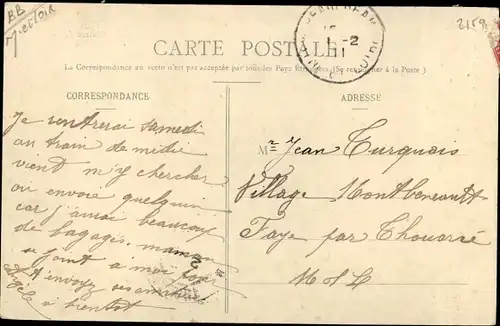 BB
M et Loir
2159
CARTE POSTALE
La Correspondance au recto n'est pas acceptée par tous les Pays Étrangers (Se renseigner à la Poste)
CORRESPONDANCE
Je rentrerai samedi
au train de midi
vient m'y chercher
ou envoie quelqu'un
car j'aurai beaucoup
de bagages. maman
se joint a moi pour
t'envoyer ses amitiés
Angèle a bientot
ADRESSE
1-2
11
Mr Jean Turquais
Village Montbeneault
Faye par Thouarcé
M & L